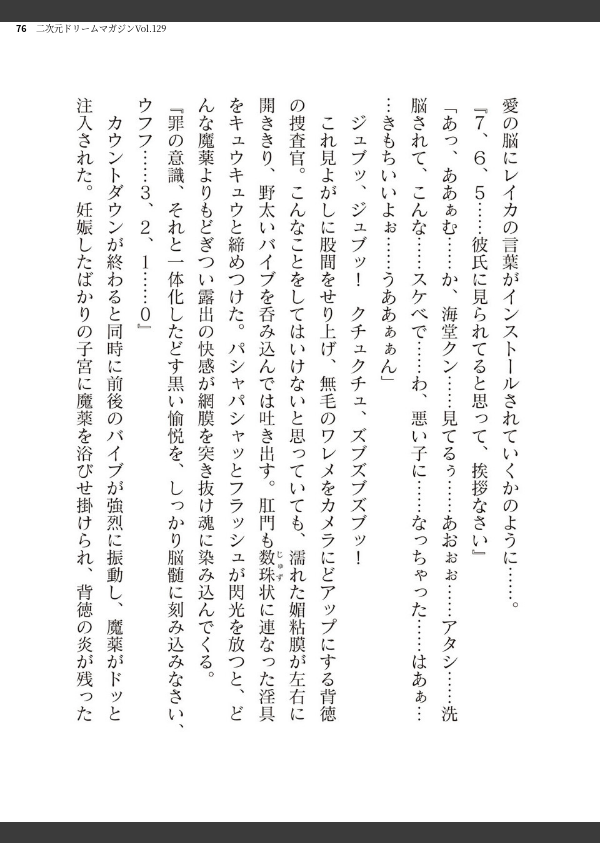 76 二次元ドリームマガジンVol.129
愛の脳にレイカの言葉がインストールされていくかのように……。
『7、6、5……彼氏に見られてると思って、挨拶なさい』
「あっ、ああぁむ……か、海堂クン……見てるぅ……あおぉぉ……アタシ……洗
脳されて、こんな……スケベで……わ、悪い子に……なっちゃった……はあぁ…
…きもちいいよぉ……うああぁぁん」
ジュブッ、ジュブッ！　クチュクチュ、ズブズブズブッ！
これ見よがしに股間をせり上げ、無毛のワレメをカメラにどアップにする背徳
の捜査官。こんなことをしてはいけないと思っていても、濡れた媚粘膜が左右に
開ききり、野太いバイブを呑み込んでは吐き出す。肛門も数珠状に連なった淫具
をキュウキュウと締めつけた。パシャパシャッとフラッシュが閃光を放つと、ど
んな魔薬よりもどぎつい露出の快感が網膜を突き抜け魂に染み込んでくる。
『罪の意識、それと一体化したどす黒い愉悦を、しっかり脳髄に刻み込みなさい、
ウフフ……3、2、1……0』
カウントダウンが終わると同時に前後のバイブが強烈に振動し、魔薬がドッと
注入された。妊娠したばかりの子宮に魔薬を浴びせ掛けられ、背徳の炎が残った